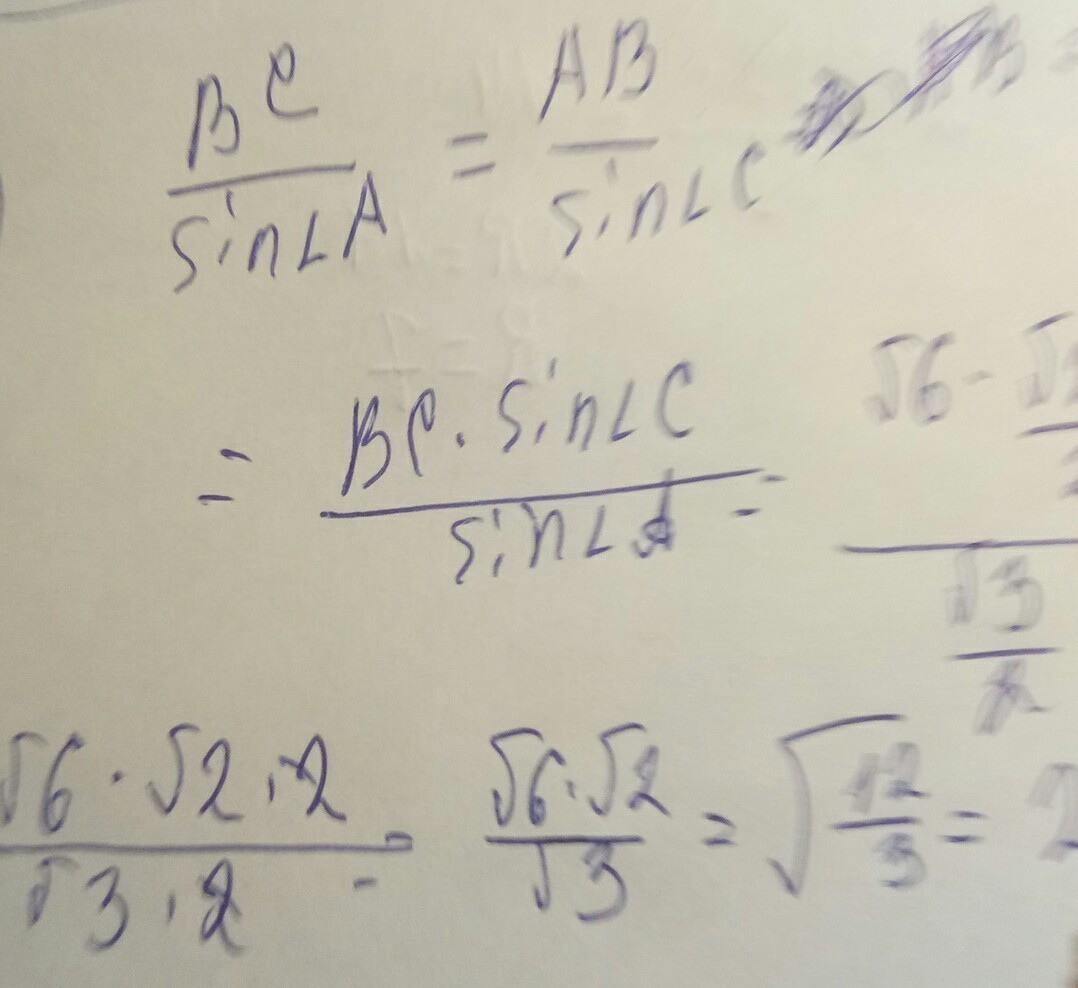 BC/sin∠A = AB/sin∠C
= BC · sin∠C / sin∠A = √6 · √2/2 / √3/2
√6 · √2 · 2 / √3 · 2 = √6 · √2 / √3 = √12/3 = 2